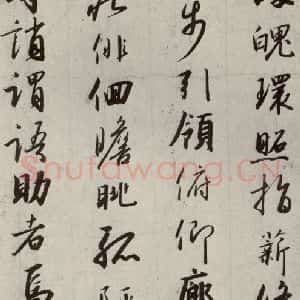 魄環照指薪修
步引領俯仰廊
俳佪瞻眺孤陋
等誚謂語助者焉
Shufawang.CN